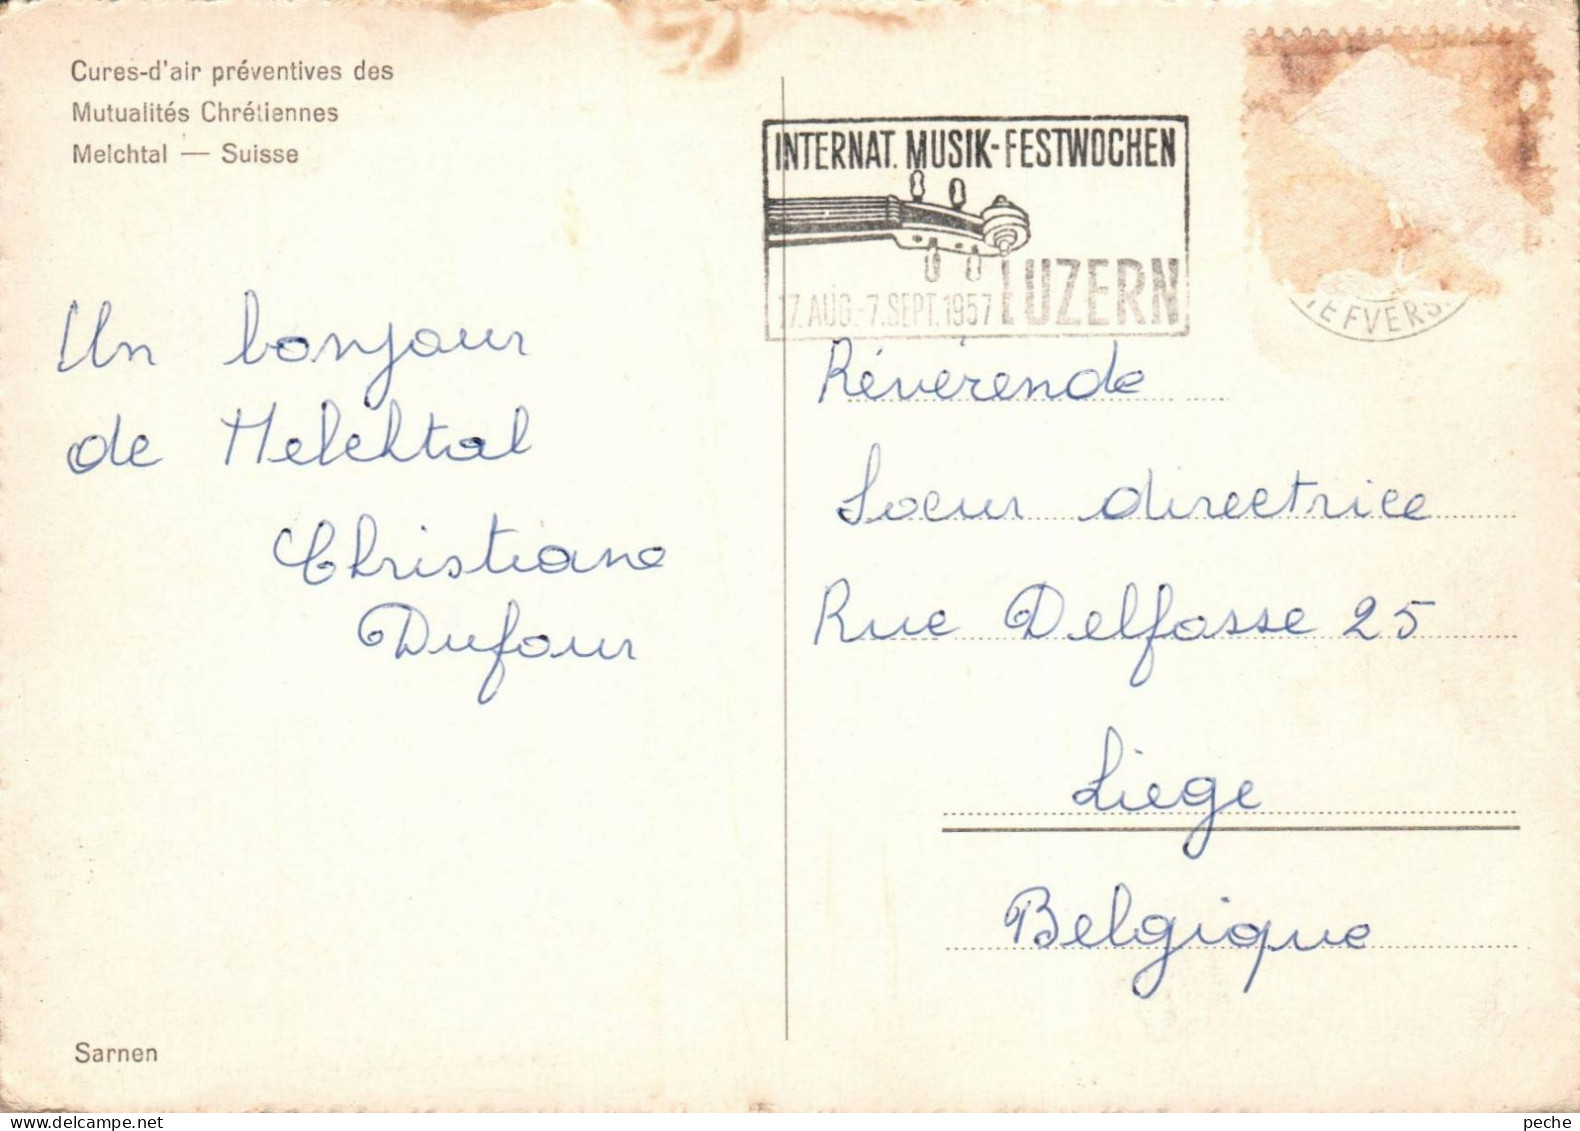 Cures-d'air préventives des
Mutualités Chrétiennes
Melchtal — Suisse
INTERNAT. MUSIK-FESTWOCHEN
LUZERN
17. AUG.-7. SEPT. 1957
IEFVERS.
Un bonjour
de Melchtal
Christiane
Dufour
Révérende
Soeur directrice
Rue Delfosse 25
Liège
Belgique
Sarnen
peche